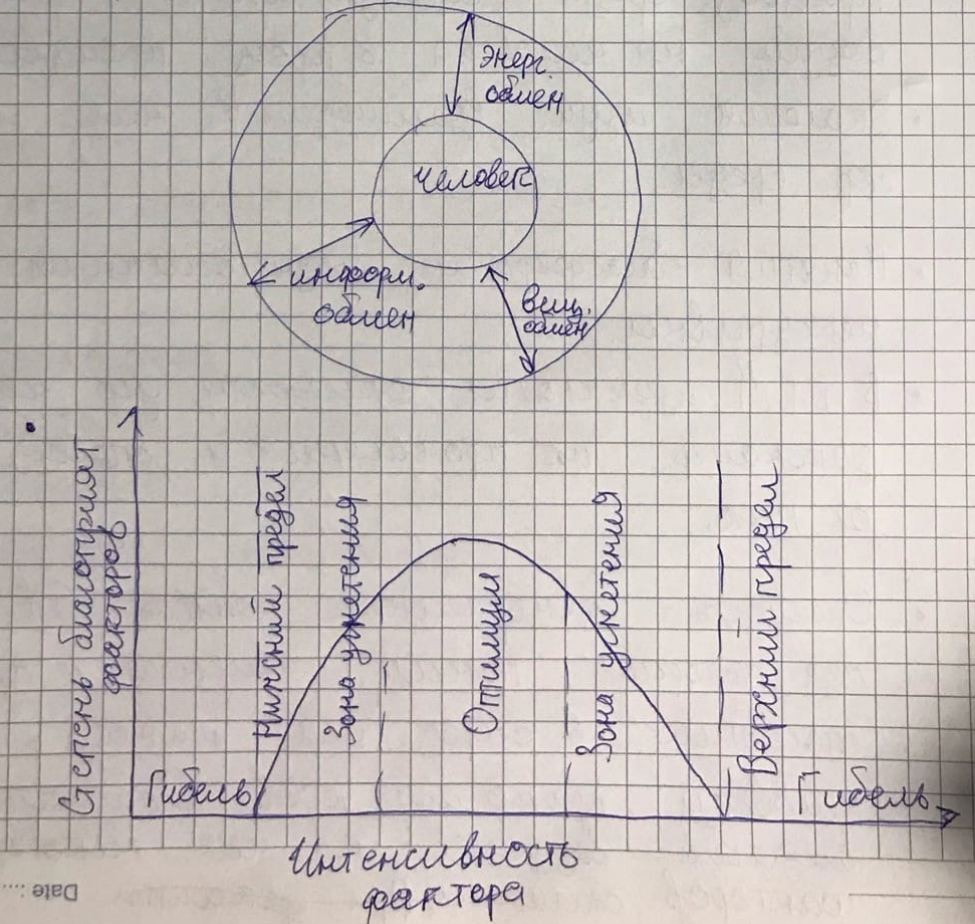 энерг.
обмен
человек
информ.
обмен
вещ.
обмен
Степень благоприят
факторов
Нижний предел
Зона угнетения
Оптимум
Зона угнетения
Верхний предел
Гибель
Гибель
Интенсивность
фактора
Date